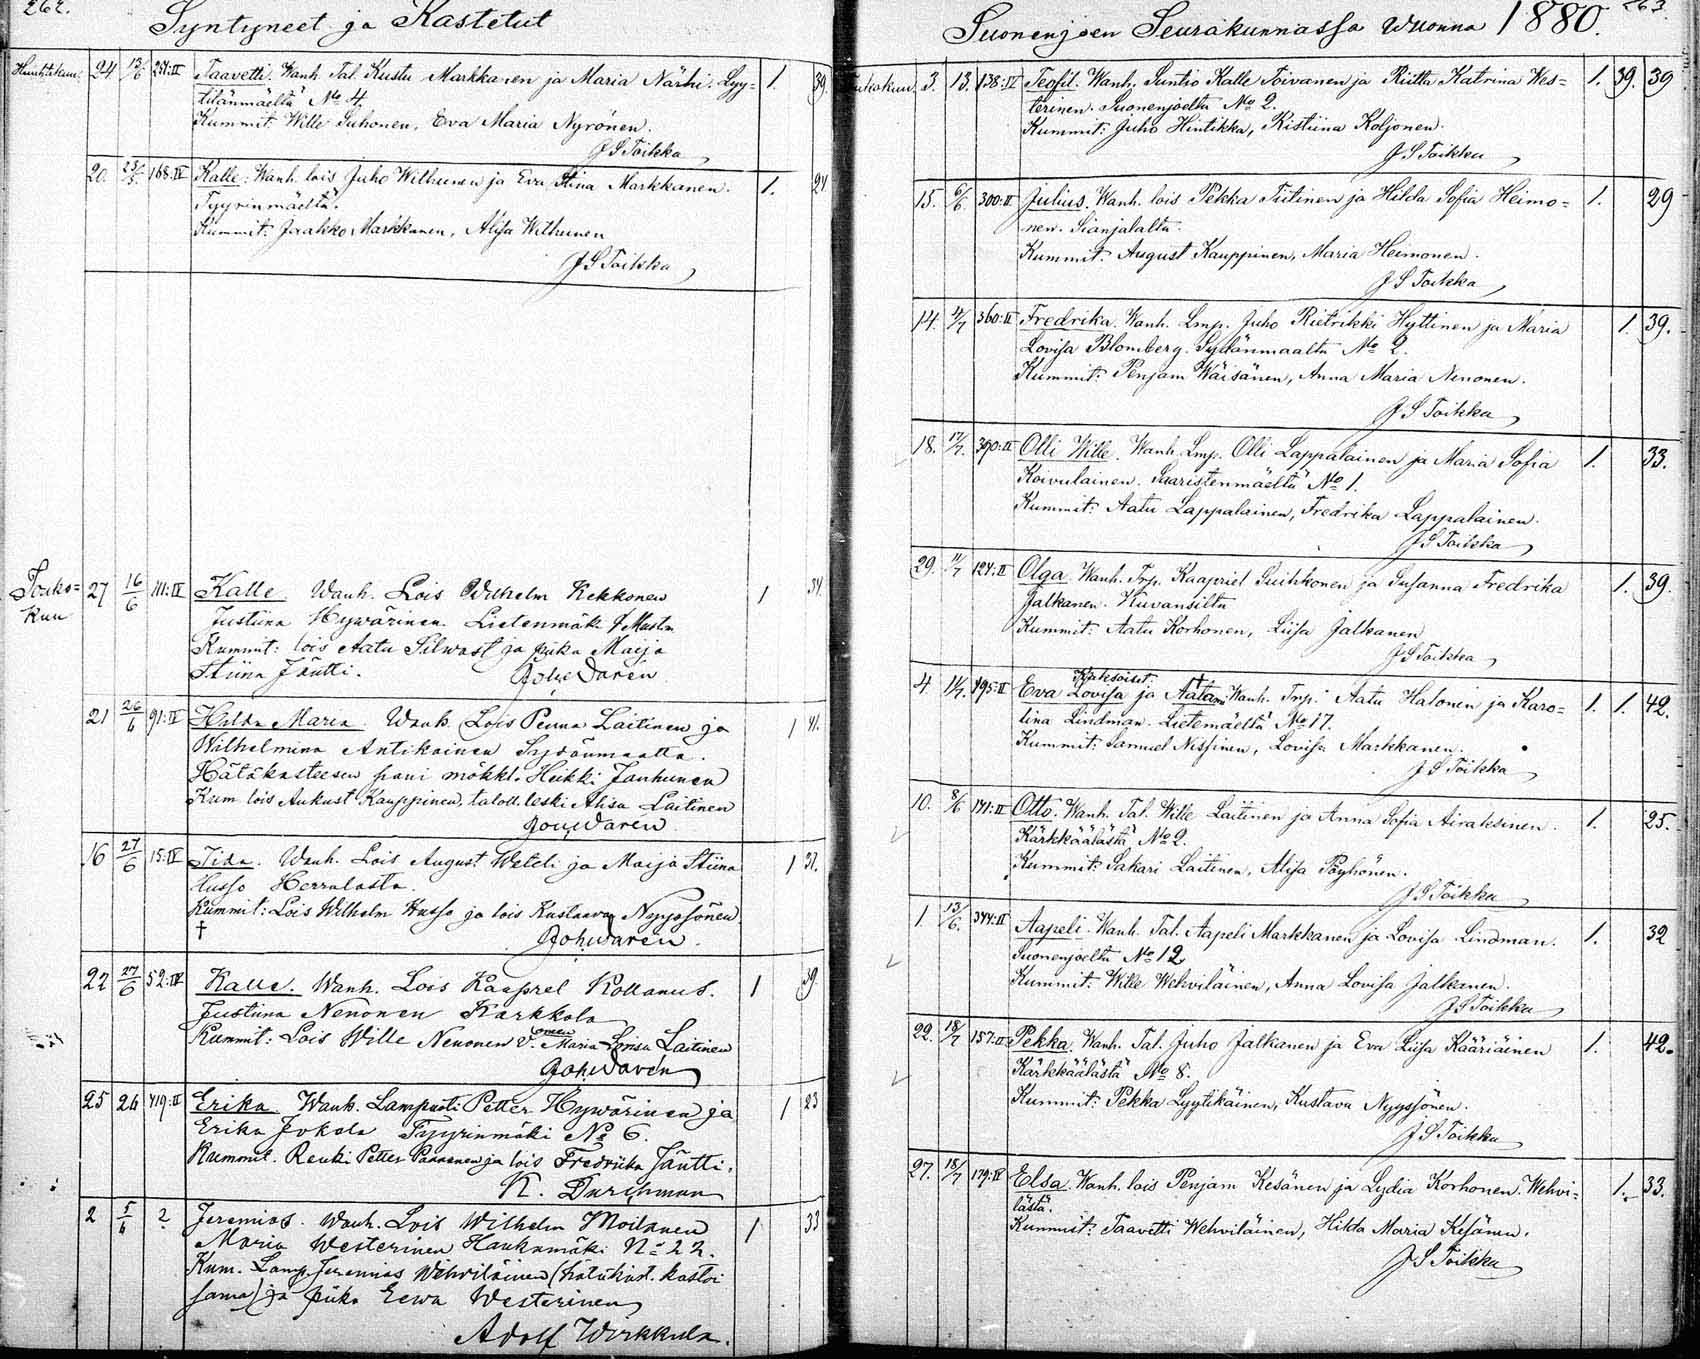 262.
Syntyneet ja Kastetut
Huhtikuu. 24 13/6 251:II Taavetti. Wanh. Tal. Kustu Markkanen ja Maria Närhi. Lyy= 1. 39.
tilänmäeltä No 4.
Kummit: Wille Suhonen, Eva Maria Nyrönen.
J S Toikka
20. 168:IV Kalle. Wanh. lois Juho Wilhunen ja Eva Stina Markkanen. 1. 24
Tyyrinmäeltä.
Kummit: Jaakko Markkanen, Alisa Wilhunen
J S Toikka
Touko=
kuu
27 16/6 111:IV Kalle. Wanh. Lois Wilhelm Kekkonen 1 34.
Justiina Hywärinen. Lietenmäk.
Kummit: lois Aatu Silwast ja piika Maija
Stiina Jäntti. Joh. Waren
21 26/6 91:IV Hilda Maria. Wanh. Lois Penna Laitinen ja 1 41.
Wilhelmina Antikainen Sydänmaalta.
Hätäkasteesen pani mökkl. Heikki Janhunen
Kum lois Aukust Kauppinen, taloll. leski Alisa Laitinen
Joh. Waren
16 27/6 15:IV Iida. Wanh. Lois August Weteli ja Maija Stiina 1 31.
Husso Herralasta.
Kummit: Lois Wilhelm Husso ja lois Kustaava Nyyssönen
† Joh. Waren.
22 27/6 52:IV Kalle. Wanh. Lois Kaaprel Kollanus. 1 39.
Justiina Nenonen Karkkola
Kummit: Lois Wille Nenonen v. Maria Lovisa Laitinen
Joh. Waren
25 26 419:II Erika. Wanh. Lampuoti Petter Hywärinen ja 1 23
Erika Jokola Tyyrinmäki No 6.
Kummit. Renki Petter Paananen ja lois Fredrika Jäntti.
K. Durchman
2 5/6 ? Jeremias. Wanh. Lois Wilhelm Moilanen 1 33
Maria Westerinen Haukamäki No 22.
Kum. Lamp. Jeremias Wehviläinen (hätäkast. kastoi
sama) ja piika Eewa Westerinen
Adolf Wirkkula.
263.
Suonenjoen Seurakunnassa wuonna 1880.
Toukokuu. 3. 13. 138:II Teofil. Wanh. Suntio Kalle Toivanen ja Riitta Katrina Wes= 1. 39. 39
terinen. Suonenjoelta No 2.
Kummit: Juho Hintikka, Kistiina Koljonen.
J S Toikka
15. 6/6. 300:II Julius. Wanh. lois Pekka Tiitinen ja Hilda Sofia Heimo= 1. 29
nen. Sianjalalta.
Kummit: August Kauppinen, Maria Heimonen.
J S Toikka
14. 4/7 360:II Fredrika. Wanh. Lmp. Juho Rietrikki Hyttinen ja Maria 1. 39.
Lovisa Blomberg. Sydänmaalta No 2.
Kummit: Penjam Wäisänen, Anna Maria Nenonen.
J S Toikka
18. 17/7. 390:II Olli Wille. Wanh. Lmp. Olli Lappalainen ja Maria Sofia 1. 33.
Koivulainen. Saaristenmäeltä No 1.
Kummit: Aatu Lappalainen, Fredrika Lappalainen.
J S Toikka
29. 11/7 124:II Olga. Wanh. Trp. Kaapriel Suihkonen ja Susanna Fredrika 1. 39.
Jalkanen. Kuvansilta
Kummit: Aatu Korhonen, Liisa Jalkanen
J S Toikka
Kaksoiset. †
4 195:II Eva Lovisa ja Aatami. Wanh. Trp. Aatu Halonen ja Karo= 1. 1. 42.
lina Lindman. Lietemäeltä No 17.
Kummit: Samuel Nissinen, Lovisa Markkanen.
J S Toikka
10. 8/6 171:II Otto. Wanh. Tal. Wille Laitinen ja Anna Sofia Airaksinen. 1. 25.
Kärkkäälästä No 2.
Kummit: Sakari Laitinen, Alisa Pöyhönen.
J S Toikka
1. 13/6. 344:II Aapeli. Wanh. Tal. Aapeli Markkanen ja Lovisa Lindman. 1. 32
Suonenjoelta No 12
Kummit: Wille Wehviläinen, Anna Lovisa Jalkanen.
J S Toikka
22. 18/7 157:II Pekka. Wanh. Tal. Juho Jalkanen ja Eva Liisa Kääriäinen 1. 42.
Kärkkäälästä No 8.
Kummit: Pekka Lyytikäinen, Kustava Nyyssönen.
J S Toikka
27. 18/7 179:IV Elsa. Wanh. lois Penjam Kesänen ja Lydia Korhonen. Wehvi= 1. 33.
lästä.
Kummit: Taavetti Wehviläinen, Hilda Maria Kesänen.
J S Toikka